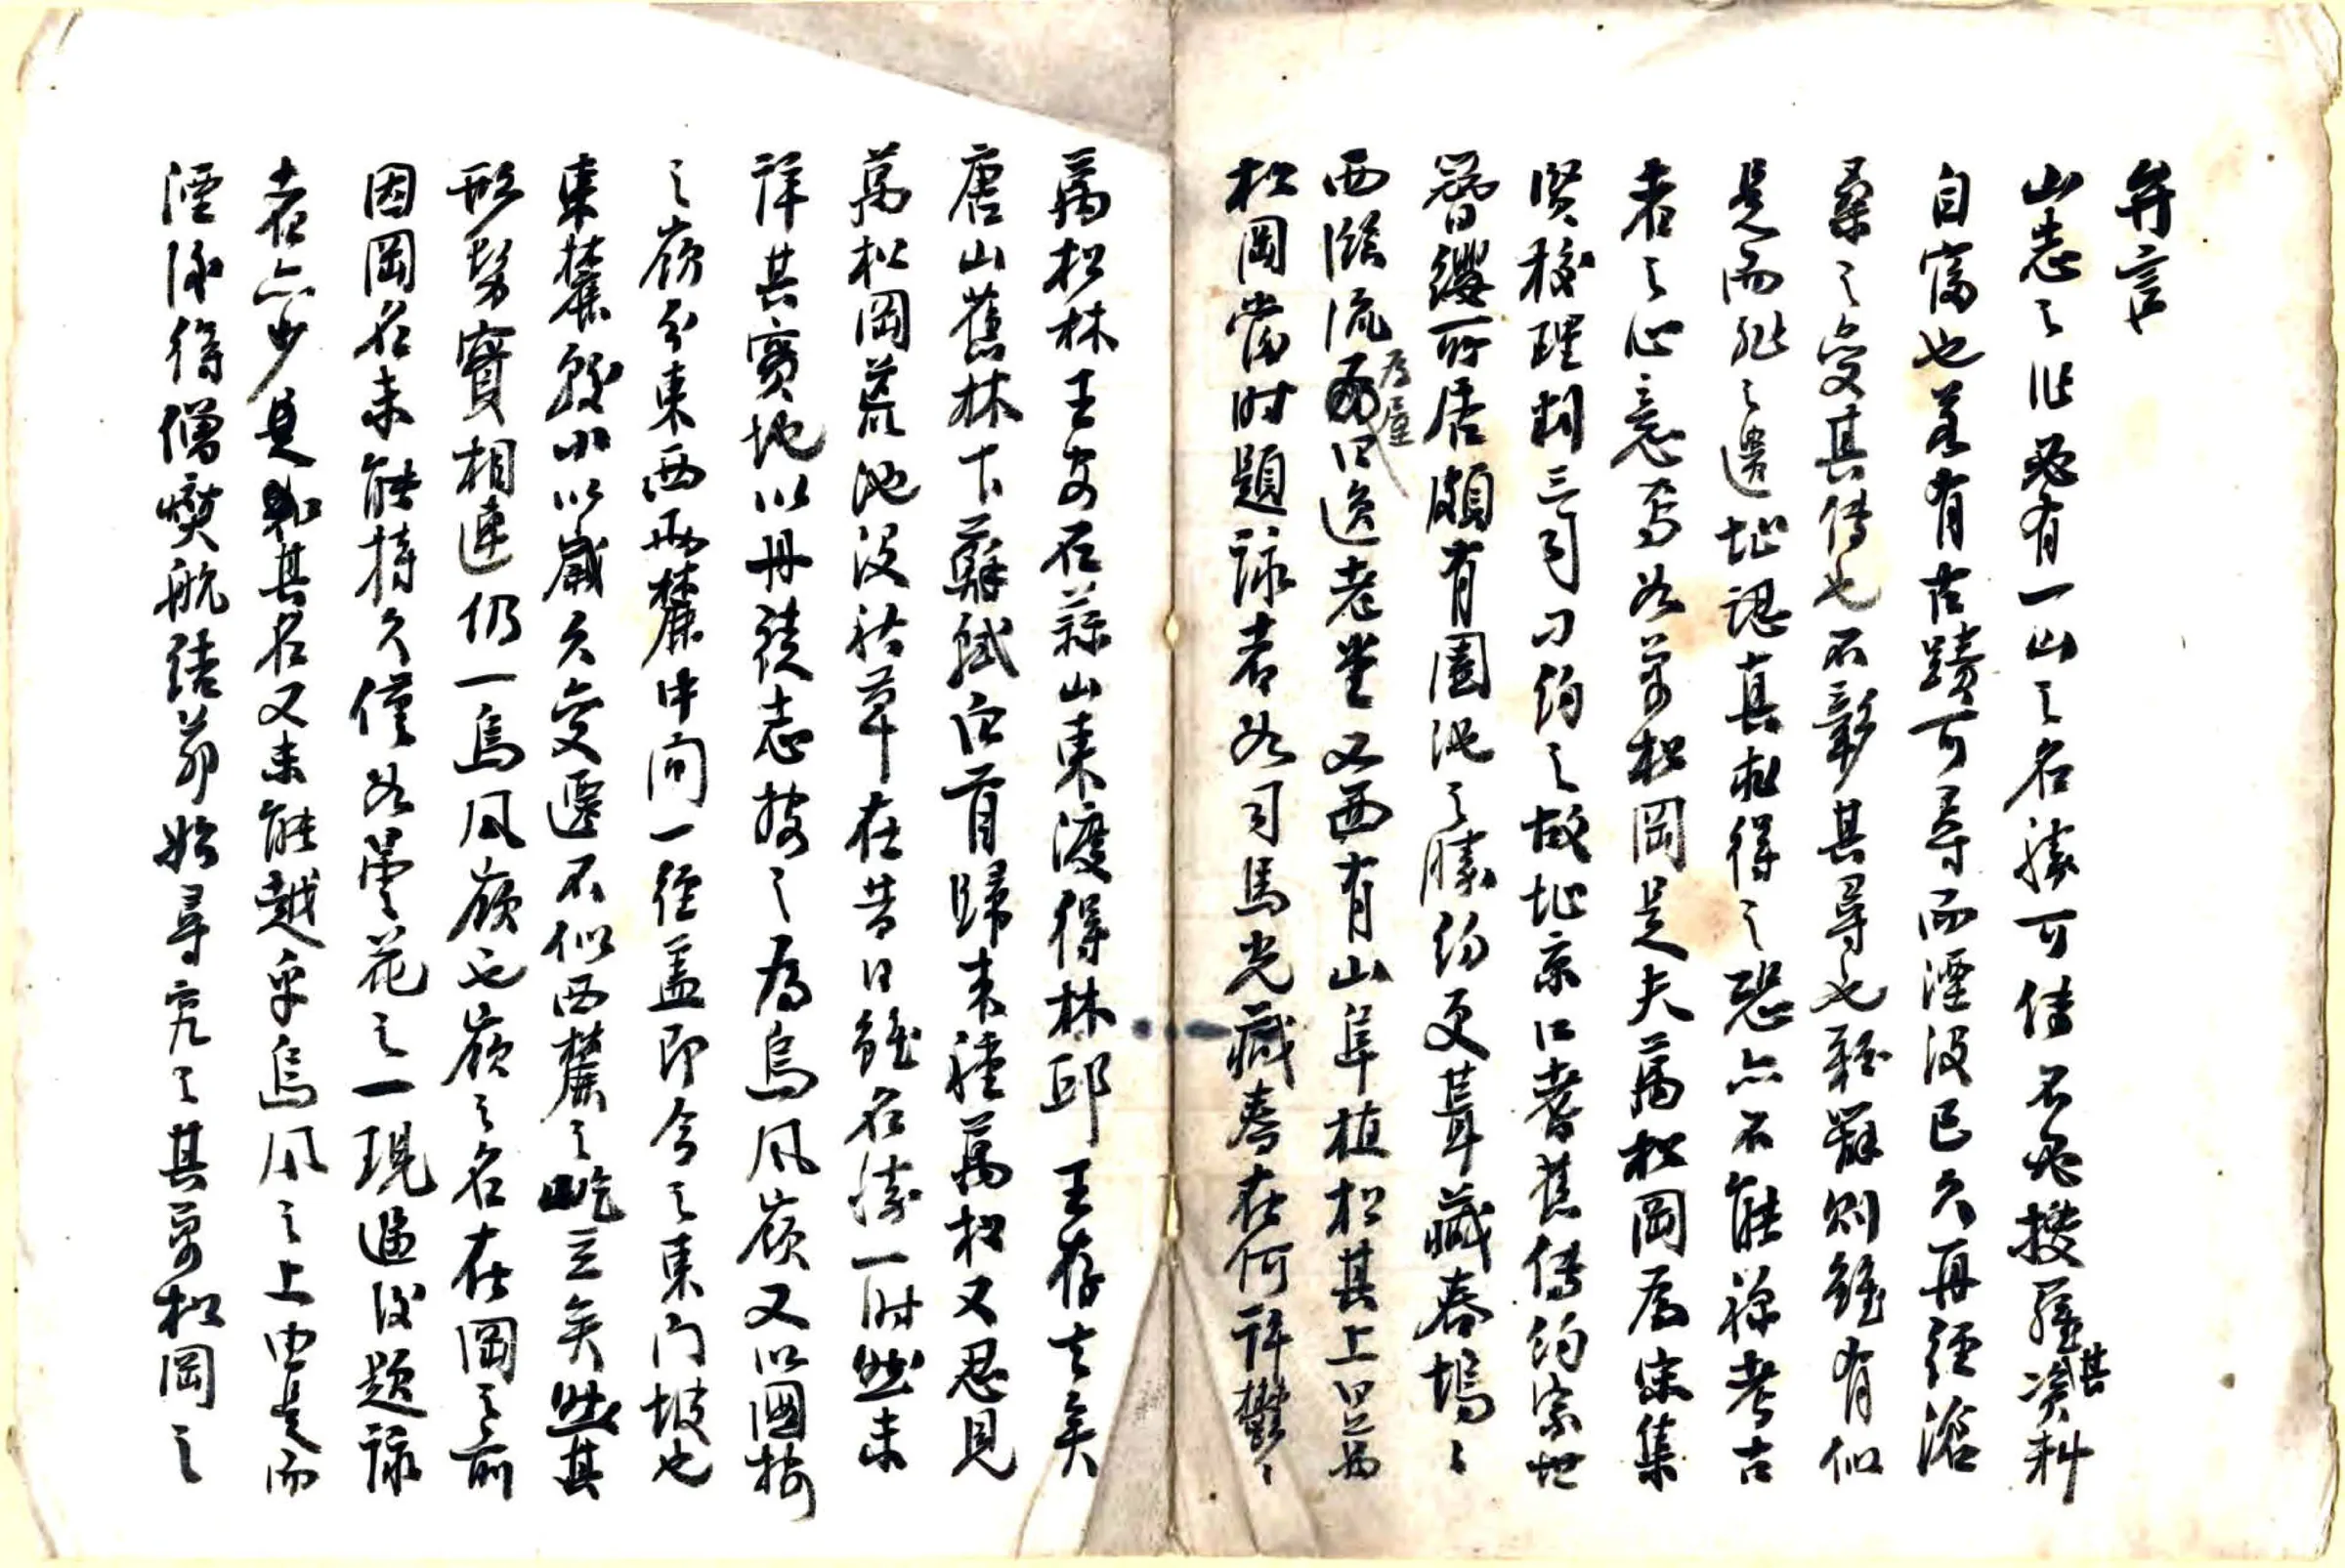 弁言
山志之作必有一山之名勝可傳不必搜羅其資料
自富也若有古蹟可尋而湮没已久再經滄
桑之變其傳也不彰其尋也難雖有似
是而非之遺址認真求得之恐亦不能獲考古
者之心意焉如萬松岡是夫萬松岡為宋集
賢校理判三司刁約之故址京口耆舊傳約家世
簪纓所居頗有園池之勝約更葺藏春塢
西臨流為屋曰逸老堂又西有山阜植松其上曰萬
松岡當時題詠者如司馬光藏春在何許鬱鬱
萬松林王安石蒜山東渡得林邱王存去矣
唐山舊林下蘇軾白首歸來種萬松又忍見
萬松岡荒池没秋草在昔日雖名傳一時然未
詳其實地以丹徒志按之為烏風嶺又以圖按
之嶺分東西兩麓中間一徑蓋即今之東門坡也
東麓較小以歲久變遷不似西麓之屹立矣然其
形勢實相連仍一烏風嶺也嶺之名在岡之前
因岡名未能持久僅如曇花之一現過後題詠
者亦少是知其名又未能越乎烏風之上由是而
湮泳得僧奭航結茆始尋究之其萬松岡之